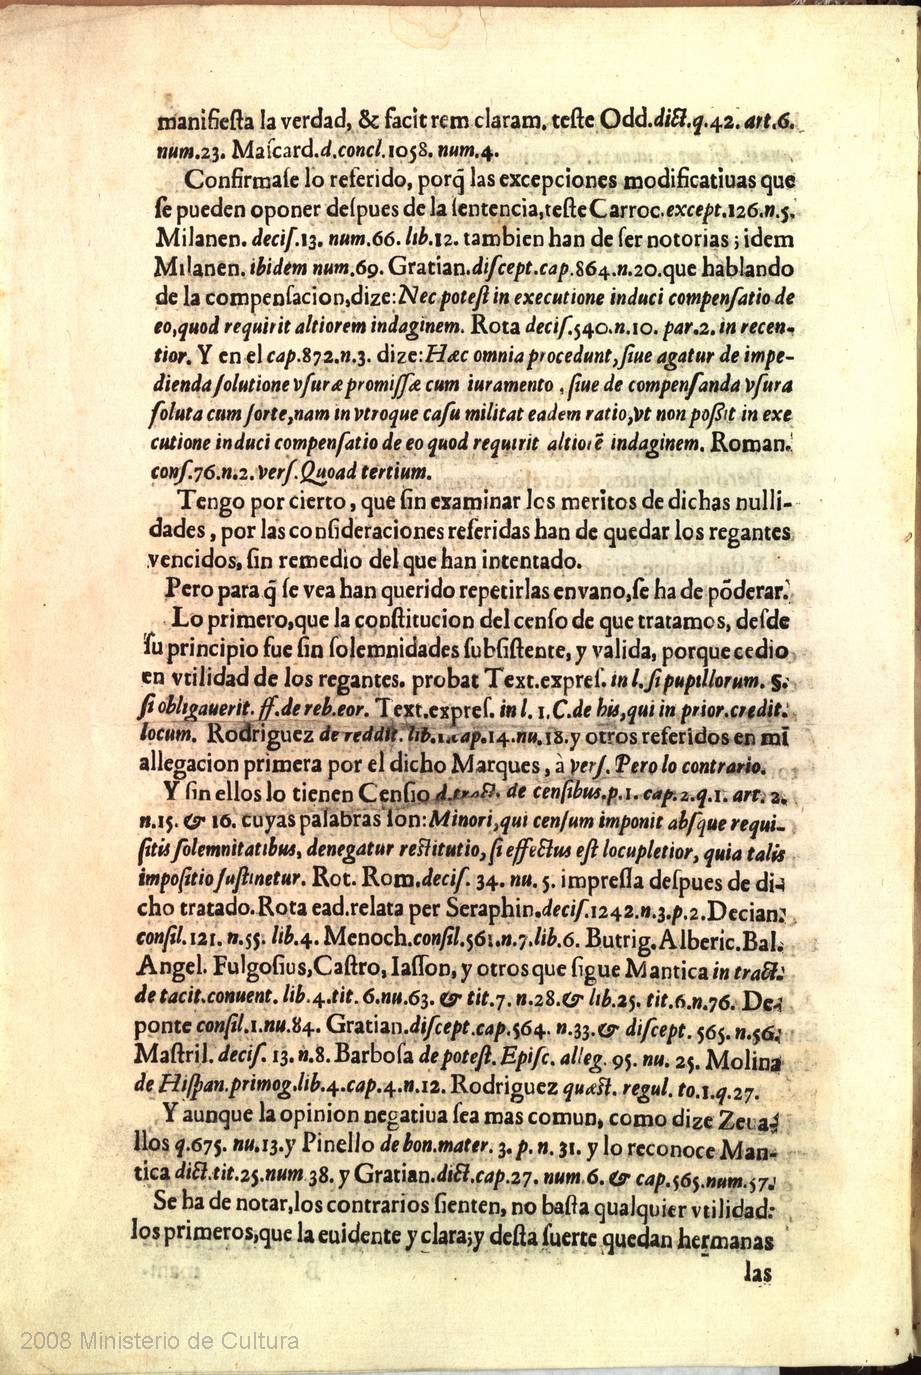 manifieſta la verdad, & facit rem claram. teſte Odd.dict.q.42. art.6.
num.23. Maſcard.d.concl.1058. num.4.
Confirmaſe lo referido, porq̃ las excepciones modificatiuas que
ſe pueden oponer deſpues de la ſentencia,teſte Carroc.except.126.n.5.
Milanen. deciſ.13. num.66. lib.12. tambien han de ſer notorias; idem
Milanen. ibidem num.69. Gratian.diſcept.cap.864.n.20.que hablando
de la compenſacion,dize:Nec poteſt in executione induci compenſatio de
eo,quod requirit altiorem indaginem. Rota deciſ.540.n.10. par.2. in recen-
tior. Y en el cap.872.n.3. dize:Hæc omnia procedunt,ſiue agatur de impe-
dienda ſolutione vſuræ promiſſæ cum iuramento, ſiue de compenſanda vſura
ſoluta cum ſorte,nam in vtroque caſu militat eadem ratio,vt non poßit in exe
cutione induci compenſatio de eo quod requirit altiorẽ indaginem. Roman.
conſ.76.n.2. verſ.Quoad tertium.
Tengo por cierto, que ſin examinar los meritos de dichas nulli-
dades, por las conſideraciones referidas han de quedar los regantes
vencidos, ſin remedio del que han intentado.
Pero para q̃ ſe vea han querido repetirlas envano,ſe ha de põderar.
Lo primero,que la conſtitucion del cenſo de que tratamos, deſde
ſu principio fue ſin ſolemnidades ſubſiſtente, y valida, porque cedio
en vtilidad de los regantes. probat Text.expreſ. in l.ſi pupillorum. §.
ſi obligauerit. ff.de reb.eor. Text.expreſ. in l. 1.C.de his,qui in prior.credit.
locum. Rodriguez de reddit. lib.1.cap.14.nu.18.y otros referidos en mi
allegacion primera por el dicho Marques, à verſ. Pero lo contrario.
Y ſin ellos lo tienen Cenſio d.tract. de cenſibus.p.1. cap.2.q.1. art. 2.
n.15. & 16. cuyas palabras ſon:Minori,qui cenſum imponit abſque requi-
ſitis ſolemnitatibus, denegatur reſtitutio,ſi effectus eſt locupletior, quia talis
impoſitio ſuſtinetur. Rot. Rom.deciſ. 34. nu. 5. impreſſa deſpues de di-
cho tratado.Rota ead.relata per Seraphin.deciſ.1242.n.3.p.2.Decian.
conſil.121. n.55. lib.4. Menoch.conſil.561.n.7.lib.6. Butrig.Alberic.Bal.
Angel. Fulgoſius,Caſtro, Iaſſon, y otros que ſigue Mantica in tract.
de tacit.conuent. lib.4.tit. 6.nu.63. & tit.7. n.28.& lib.25. tit.6.n.76. De-
ponte conſil.1.nu.84. Gratian.diſcept.cap.564. n.33.& diſcept. 565. n.56.
Maſtril. deciſ. 13. n.8. Barboſa de poteſt. Epiſc. alleg. 95. nu. 25. Molina
de Hiſpan.primog.lib.4.cap.4.n.12. Rodriguez quæſt. regul. to.1.q.27.
Y aunque la opinion negatiua ſea mas comun, como dize Zeua-
llos q.675. nu.13.y Pinello de bon.mater. 3. p. n. 31. y lo reconoce Man-
tica dict.tit.25.num 38. y Gratian.dict.cap.27. num.6. & cap.565.num.57.
Se ha de notar,los contrarios ſienten, no baſta qualquier vtilidad:
los primeros,que la euidente y clara;y deſta ſuerte quedan hermanas
las
2008 Ministerio de Cultura